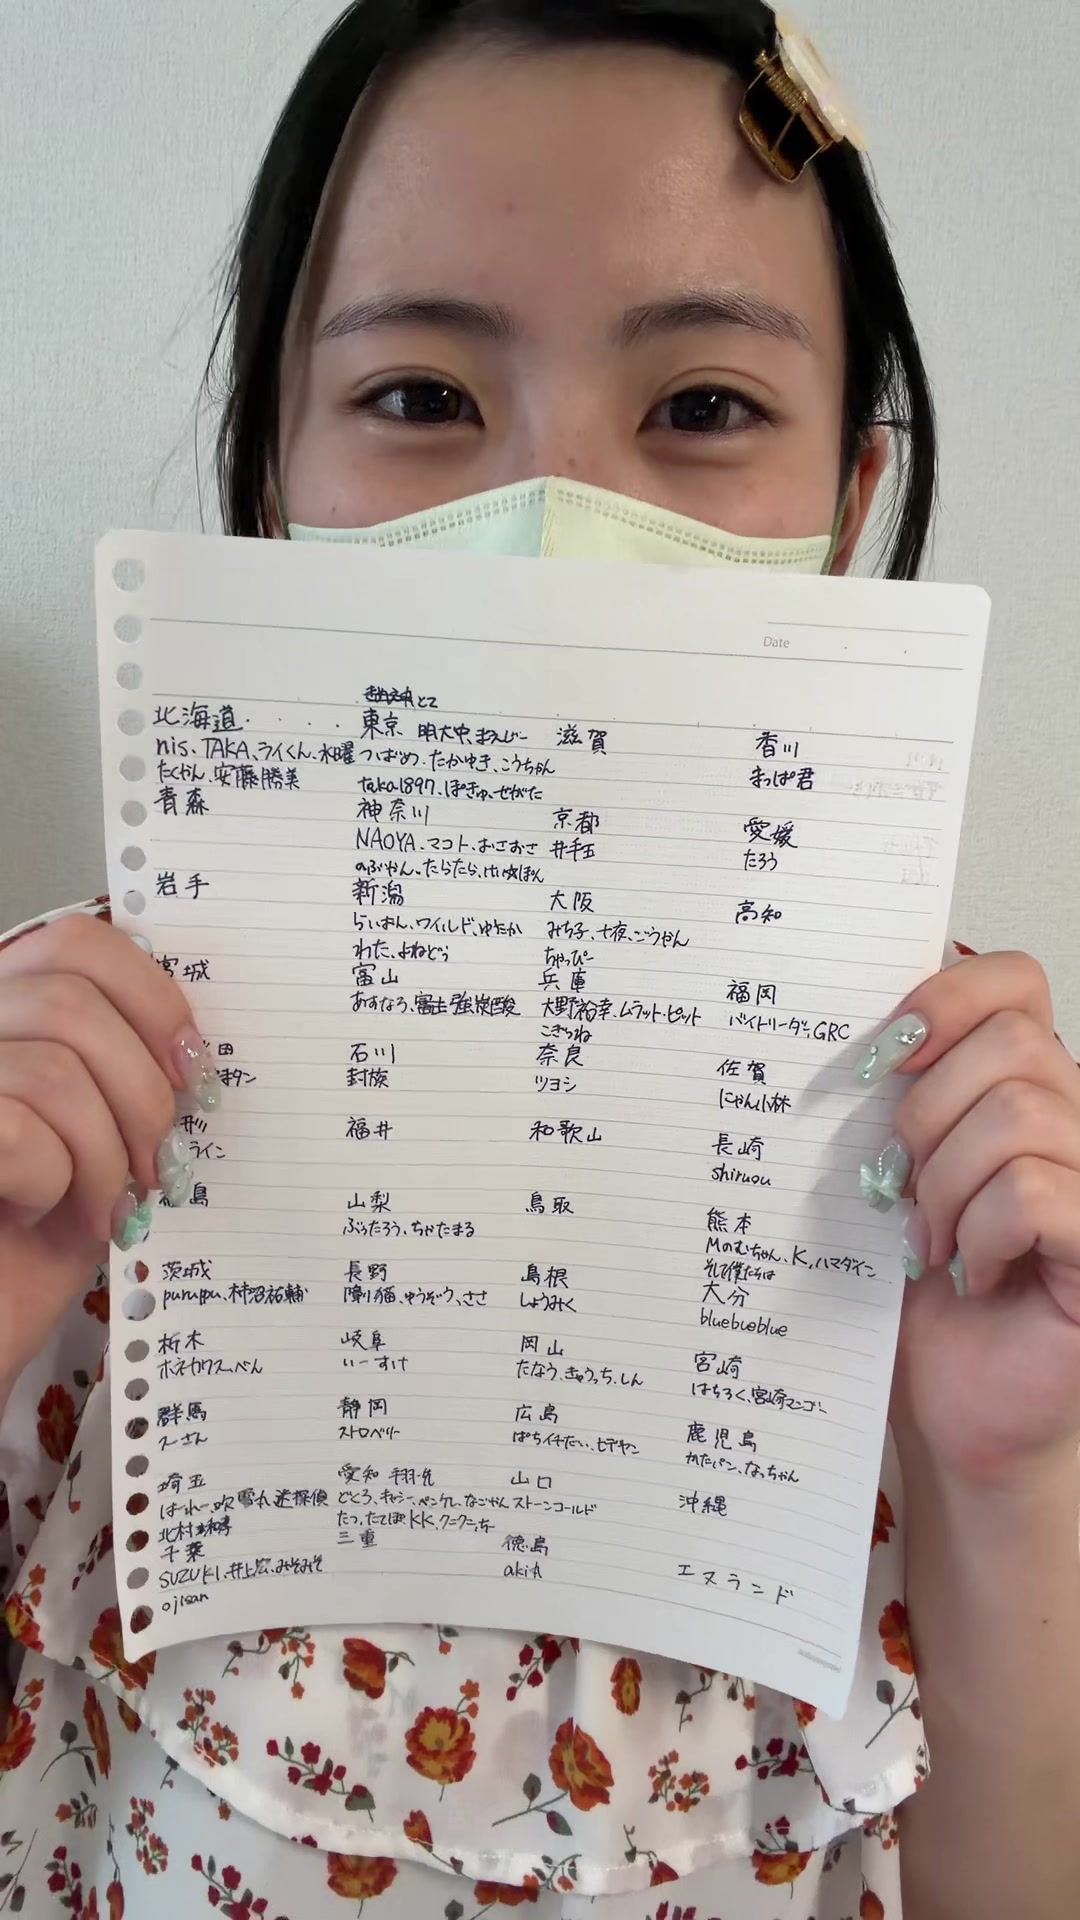 Date
とて
北海道
nis、TAKA、ライくん、水曜
たくやん、安藤勝美
青森
岩手
宮城
田
タン
ライン
島
茨城
purupu、柿沼祐輔
栃木
ホネカワス、べん
群馬
えーさん
埼玉
はーれー、吹雪丸、迷探偵
北村
千葉
SUZUKI、井上宏、みそみそ
ojisan
東京 明大中、まえじー
つばめ、たかゆき、こうちゃん
taka1897、ぽきゅ、せがた
神奈川
NAOYA、マコト、おさおさ
のぶやん、たらたら、けいゆぽん
新潟
らいおん、ワイルド、ゆたか
わた、よねどぅ
富山
あすなろ、富士強炭酸
石川
封族
福井
山梨
ぶぅたろう、ちゃたまる
長野
猫、ゆうぞう、ささ
岐阜
いーすけ
静岡
ストロベリー
愛知 翔允
どくろ、キャシー、ペンケレ、なごやん
たつ、たてぽ、KK、クニクニっち
三重
滋賀
京都
井手玉
大阪
みち子、七夜、ごうやん
ちゃっぴー
兵庫
大野裕幸、ムラット・ピット
こぎつね
奈良
ツヨシ
和歌山
鳥取
島根
しょうみく
岡山
たなう、きゅうっち、しん
広島
ぱちイチだい、ヒデヤン
山口
ストーンコールド
徳島
akiA
香川
まっぱ君
愛媛
たろう
高知
福岡
バイトリーダー、GRC
佐賀
にゃん小林
長崎
shiruou
熊本
Mのむちゃん、K、ハマダイン
そして僕たちは
大分
bluebueblue
宮崎
はちろく、宮崎マンゴー
鹿児島
かたパン、なっちゃん
沖縄
エヌランド